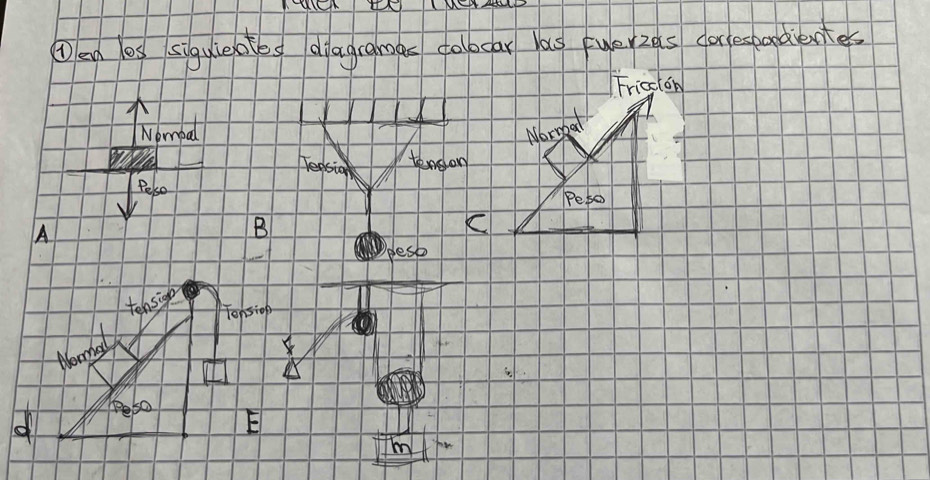 Taller de Fuerzas
① en los siguientes diagramas colocar las fuerzas correspondientes
Normal
Peso
A
Tension
tension
peso
B
Fricción
Normal
Peso
C
tension
Tension
Normal
Peso
d
F
m
E